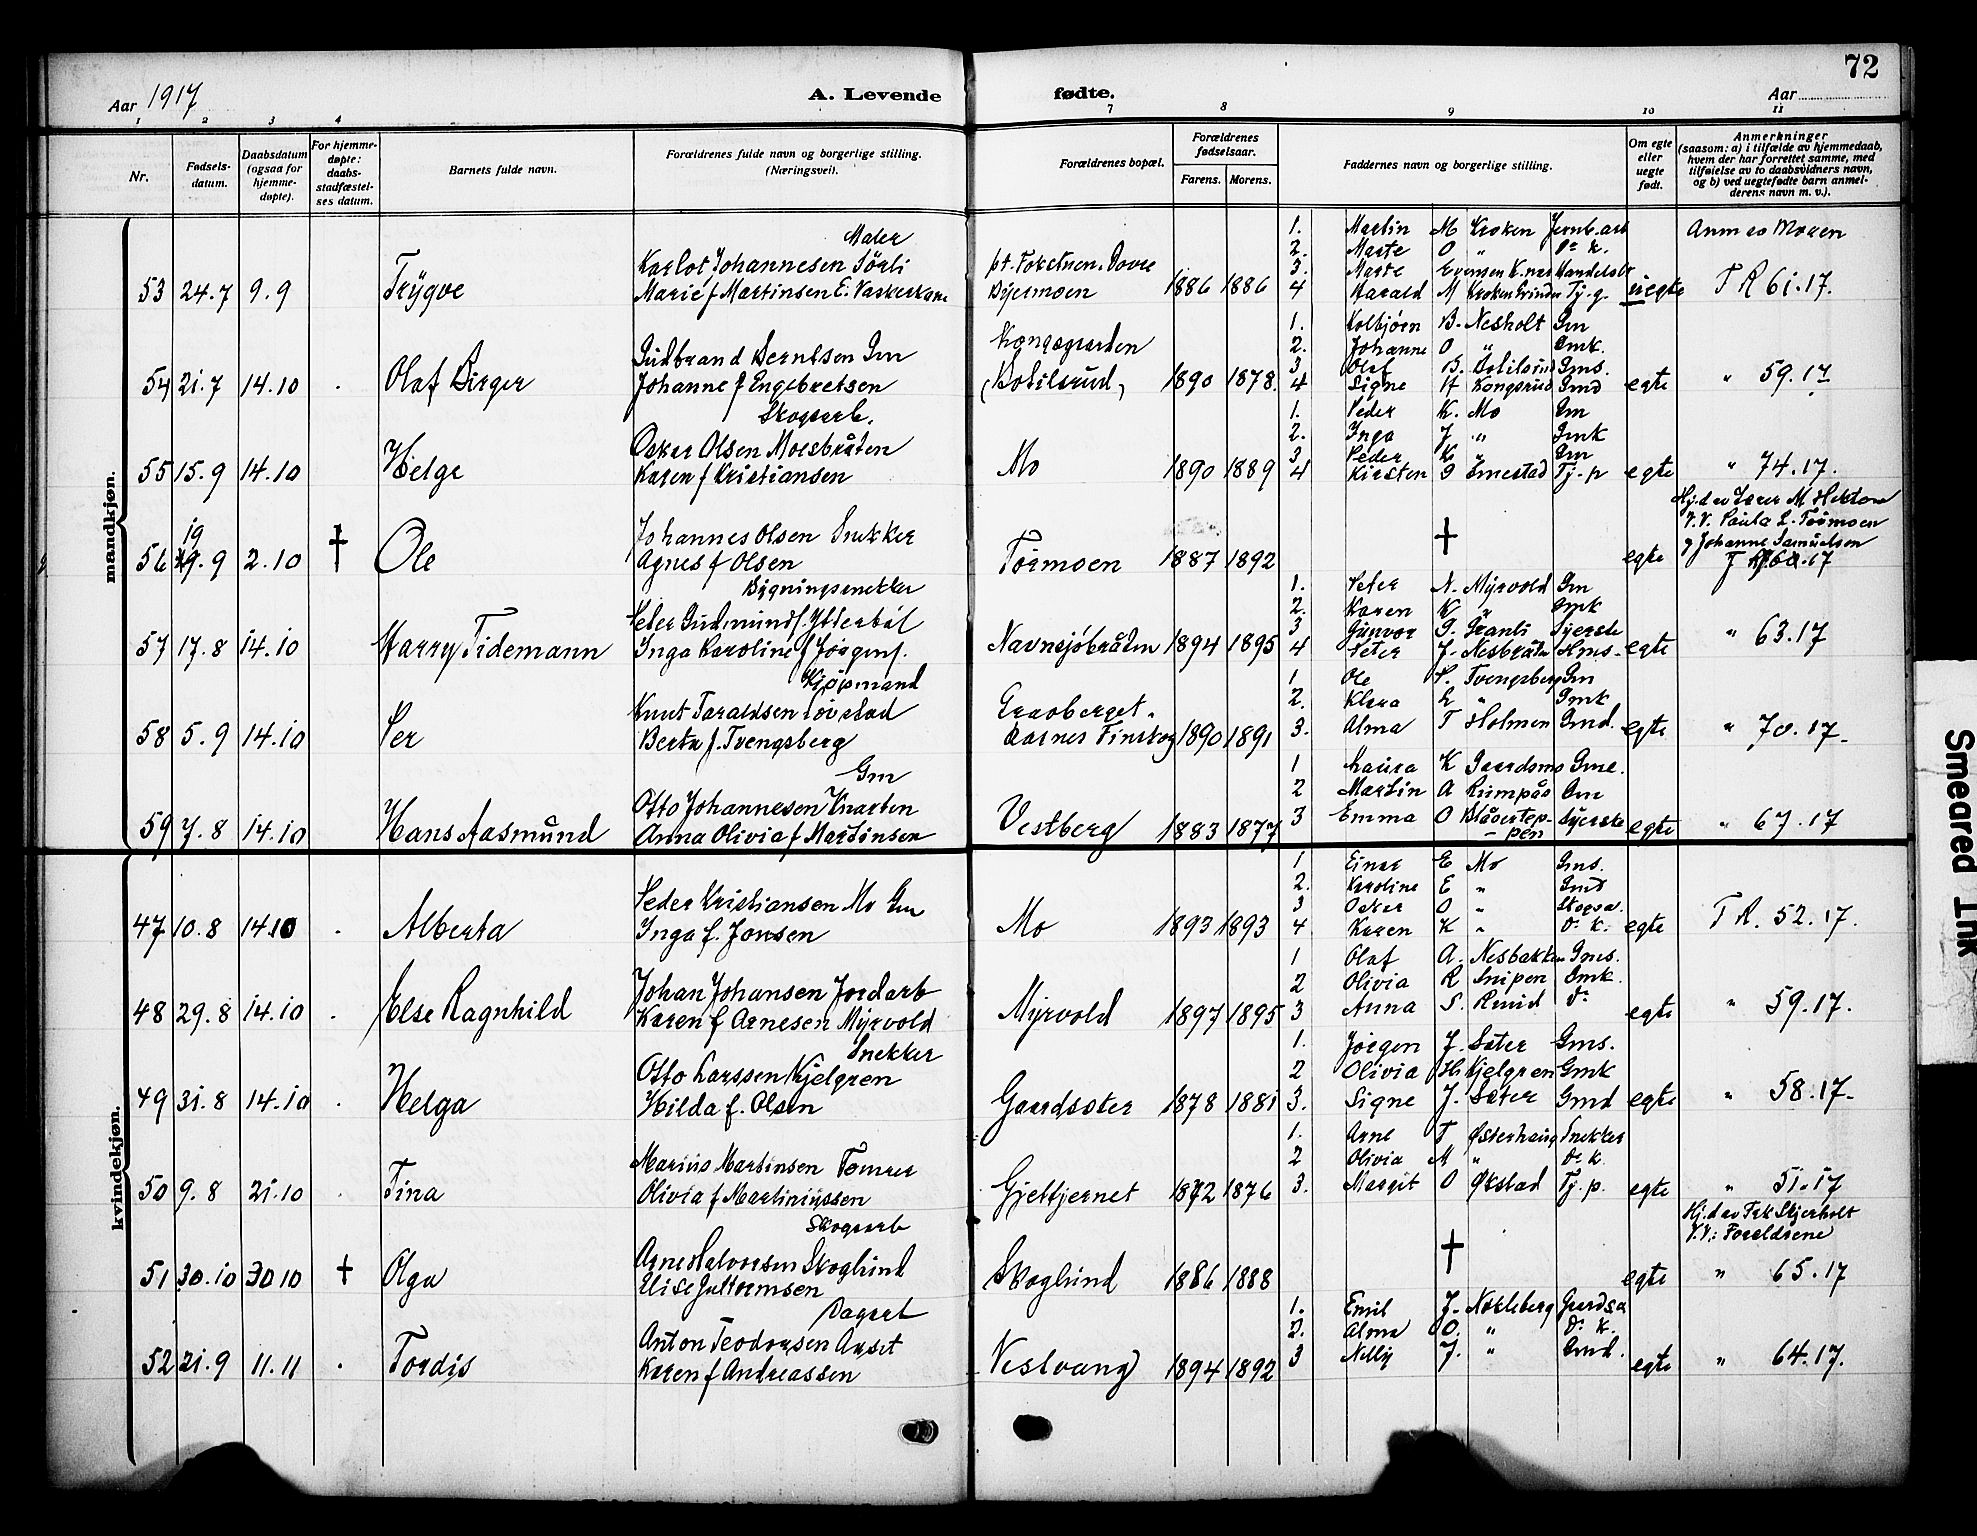 72
Aar 1917
A. Levende fødte.
Aar
1 2 3 4 7 8 9 10 11
Nr.
Fødsels-datum.
Daabsdatum (ogsaa for hjemme-døpte).
For hjemme-døpte: daabs-stadfæstel-ses datum.
Barnets fulde navn.
Forældrenes fulde navn og borgerlige stilling. (Næringsvei).
Forældrenes bopæl.
Forældrenes fødselsaar.
Farens. Morens.
Faddernes navn og borgerlige stilling.
Om egte eller uegte født.
Anmerkninger (saasom: a) i tilfælde av hjemmedaab, hvem der har forrettet samme, med tilføielse av to daabsvidners navn, og b) ved uegtefødte barn anmel-derens navn m. v.).
mandkjøn.
Maler
1. Martin M Kroken Jernb.arb
Anm av Moren
2. Marte O " Do k.
Karlot Johannesen Sörli
pt. Fokstuen. Dovre
3. Marte
53 24.7 9.9 Trygve Marie f Martinsen
1886 1886
4 Harald M Kroken Tj.g. uegte T R 61.17.
1. Kolbjørn B. Nesholt Gm
Gudbrand Berntsen Gm
Kongsgaarden
2. Johanne O " Gmk.
3 Olaf B. Gms.
54 21.7 14.10 . Olaf Birger Johanne f Engebretsen
1890 1878.
4 Signe H Kongsrud Gmd egte " 59.17
Skogsarb.
1. Peder K. Mo Gm
2. Inga J " Gmk
Oskar Olsen Moesbråten
3 Peder K " Gm
55 15.9 14.10 Helge Karen f Kristiansen Mo 1890 1889
4 Kirsten Emestad Tj.p egte " 74.17.
Hj.d av Lærer M Hekton
V.V. Paula L. Törmoen
Johannes Olsen Snekker
†
g Johanne Samuelsen
19
56 9.9 2.10 † Ole Agnes f Olsen Törmoen 1887 1892 egte
Bygningssnekker
1. Peter N. Myrvold Gm
2. Karen K " Gmk
Peder Gudmundf. Ytterböl
3 Gunvor Granli Syerske
57 17.8 14.10 Harry Tidemann Inga Karoline f Jörgens. Navnsjöbråten 1894 1895
4 Peter J. Nesbråten Gms. egte " 63.17
Kjøpmand
1 Ole P. Tvengsberg Gm
2. Klara L " Gmk
Knut Taraldsen Lövstad
Graaberget.
58 5.9 14.10 Per Berta f. Tvengsberg
Aasnes Finskog 1890 1891
3. Alma T Holmen Gmd. egte " 70.17.
Gm
1 Laura K
2 Martin A Rumpås Gm
Otto Johannesen Knarten
59 7.8 14.10 Hans Aasmund Anna Olivia f Martinsen Vestberg 1883 1877
3 Emma O Blåvertep-pen Syerske egte " 67.17
kvindekjøn.
1 Einar E Mo Gms.
2. Karoline E " Gmd
Peder Kristiansen Mo Gm
3 Oskar O " Skogsa.
47 10.8 14.10 . Alberta Inga f. Jonsen Mo 1893 1893
4 Karen K " Do k. egte T R. 52.17.
1 Olaf A. Nesbakken Gms.
2 Olivia R Snipen Gmk.
Johan Johansen Jordarb
48 29.8 14.10 . Else Ragnhild Karen f Arnesen Myrvold Myrvold 1897 1895
3 Anna S. Do egte " 59.17.
Snekker
1. Jørgen J. Sæter Gms.
Otto Larssen Kjelgren
2 Olivia H Kjelgren Gmk
49 31.8 14.10 . Helga Hilda f. Olsen Gaardsæter 1878 1881
3. Signe J. Sæter Gmd egte " 58.17.
1. Arne T Østerhaug Snekker
Marius Martinsen Tømrer
2 Olivia M " Do k
50 9.8 21.10 . Tina Olivia f Martiniussen Gjettjernet 1872 1876
3. Margit O Økstad Tj.p. egte " 51.17
Skogsarb
Hj.d av Frk Skjerholt
V.V: Foreldrene
Arne Halvorsen Skoglund
†
51 30.10 30 10 † Olga Elise Guttormsen Skoglund 1886 1888 egte " 65.17
Dagarb
1. Emil J. Nokleberg
Anton Teodorsen
2. Alma O. " Do k.
52 21.9 11.11 . Tordis Karen f Andreassen Vestvang 1894 1892
3 Nelly J. " Gmd. egte " 64.17.
Smeared Ink